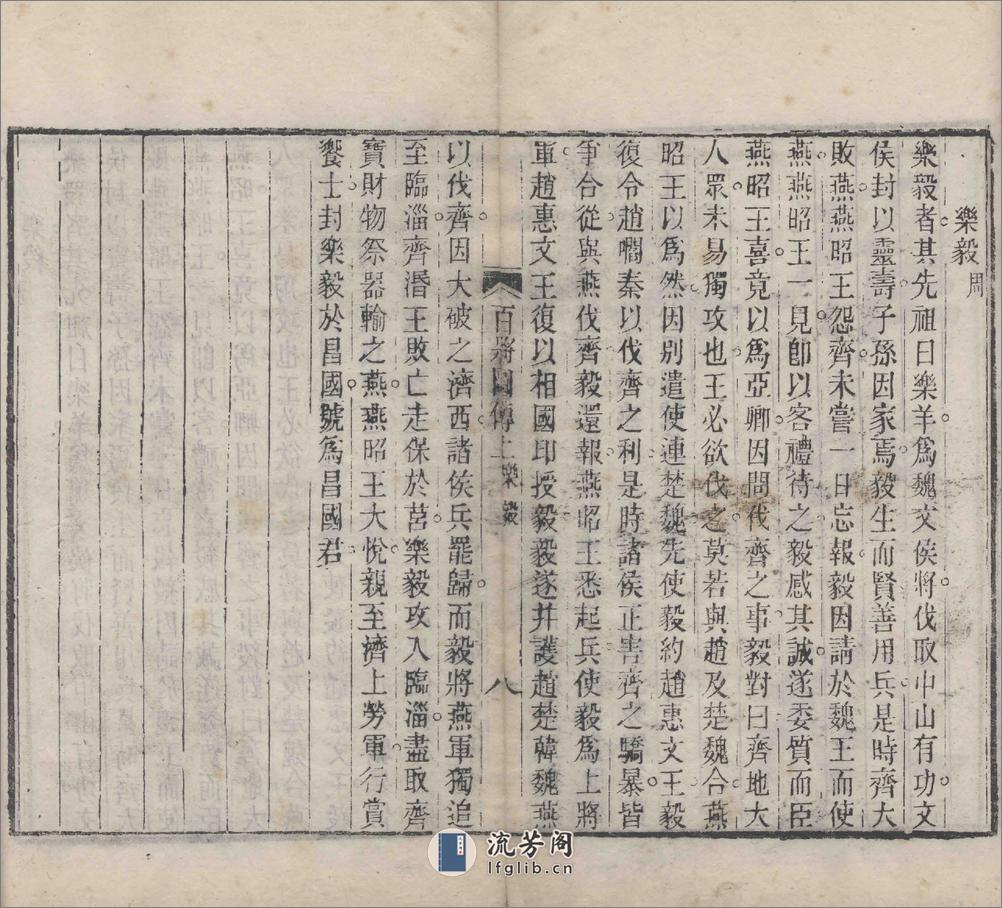 樂毅周
樂毅者其先祖曰樂羊爲魏文侯將伐取中山有功文
侯封以靈壽子孫因家焉毅生而賢善用兵是時齊大
敗燕燕昭王怨齊未嘗一日忘報毅因請於魏王而使
燕燕昭王一見卽以客禮待之毅感其誠遂委質而臣
燕昭王喜竟以爲亞卿因問伐齊之事毅對曰齊地大
人眾未易獨攻也王必欲伐之莫若與趙及楚魏合燕
昭王以爲然因別遣使連楚魏先使毅約趙惠文王毅
復令趙㗖秦以伐齊之利是時諸侯正害齊之驕暴皆
爭合從與燕伐齊毅還報燕昭王悉起兵使毅爲上將
軍趙惠文王復以相國印授毅毅遂并護趙楚韓魏燕
百將圖傳上樂毅 八
以伐齊因大破之濟西諸侯兵罷歸而毅將燕軍獨追
至臨淄齊湣王敗亡走保於莒樂毅攻入臨淄盡取齊
寶財物祭器輸之燕燕昭王大悅親至濟上勞軍行賞
饗士封樂毅於昌國號爲昌國君
流芳阁
lfglib.cn